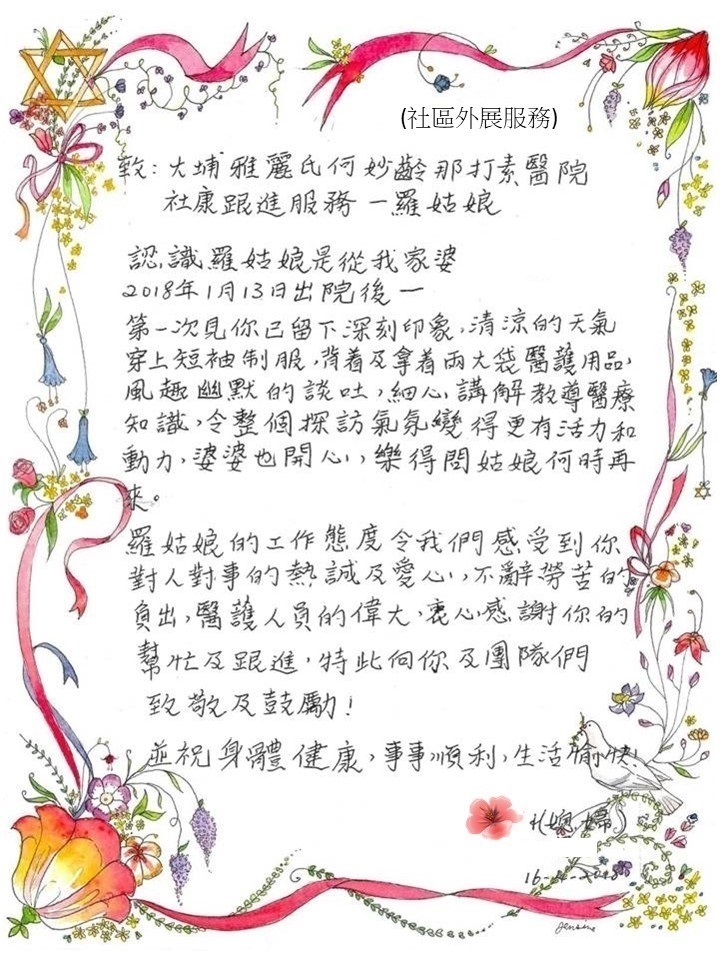 (社區外展服務)
致：大埔雅麗氏何妙齡那打素醫院
社康跟進服務一羅姑娘
認識羅姑娘是從我家婆
2018年1月13日出院後一
第一次見你已留下深刻印象，清涼的天氣
穿上短袖制服，背着及拿着兩大袋醫護用品，
風趣幽默的談吐，細心講解教導醫療
知識，令整個探訪氣氛變得更有活力和
動力，婆婆也開心，樂得問姑娘何時再
來。
羅姑娘的工作態度令我們感受到你
對人對事的熱誠及愛心，不辭勞苦的
負出，醫護人員的偉大，衷心感謝你的
幫忙及跟進，特此向你及團隊們
致敬及鼓勵！
並祝身體健康，事事順利，生活愉快！
(媳婦)
16-4-2018